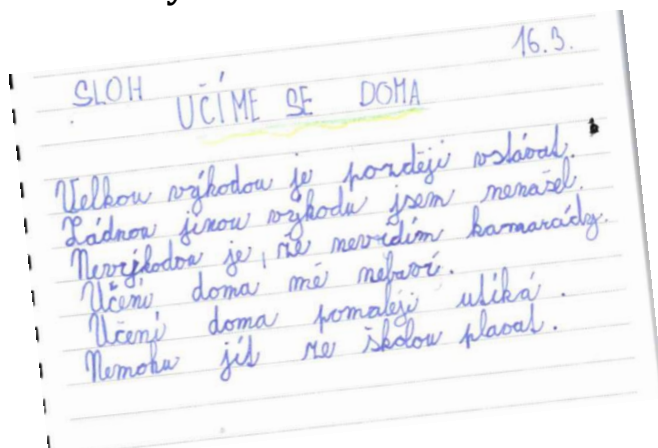 16.3.
SLOH
UČÍME SE DOMA
Velkou výhodou je pozdější vstávat.
Žádnou jinou výhodu jsem nenašel.
Nevýhodou je, že nevidím kamarády.
Učení doma mě nebaví.
Učení doma pomaleji utíká.
Nemohu jít ze školou plavat.